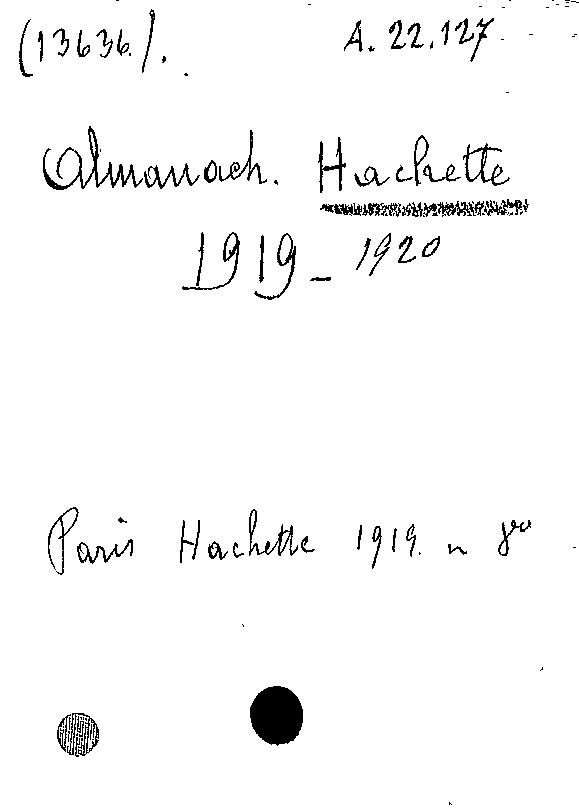 (13636).
A. 22.127
Almanach. Hachette
1919 - 1920
Paris Hachette 1919. in 8vo